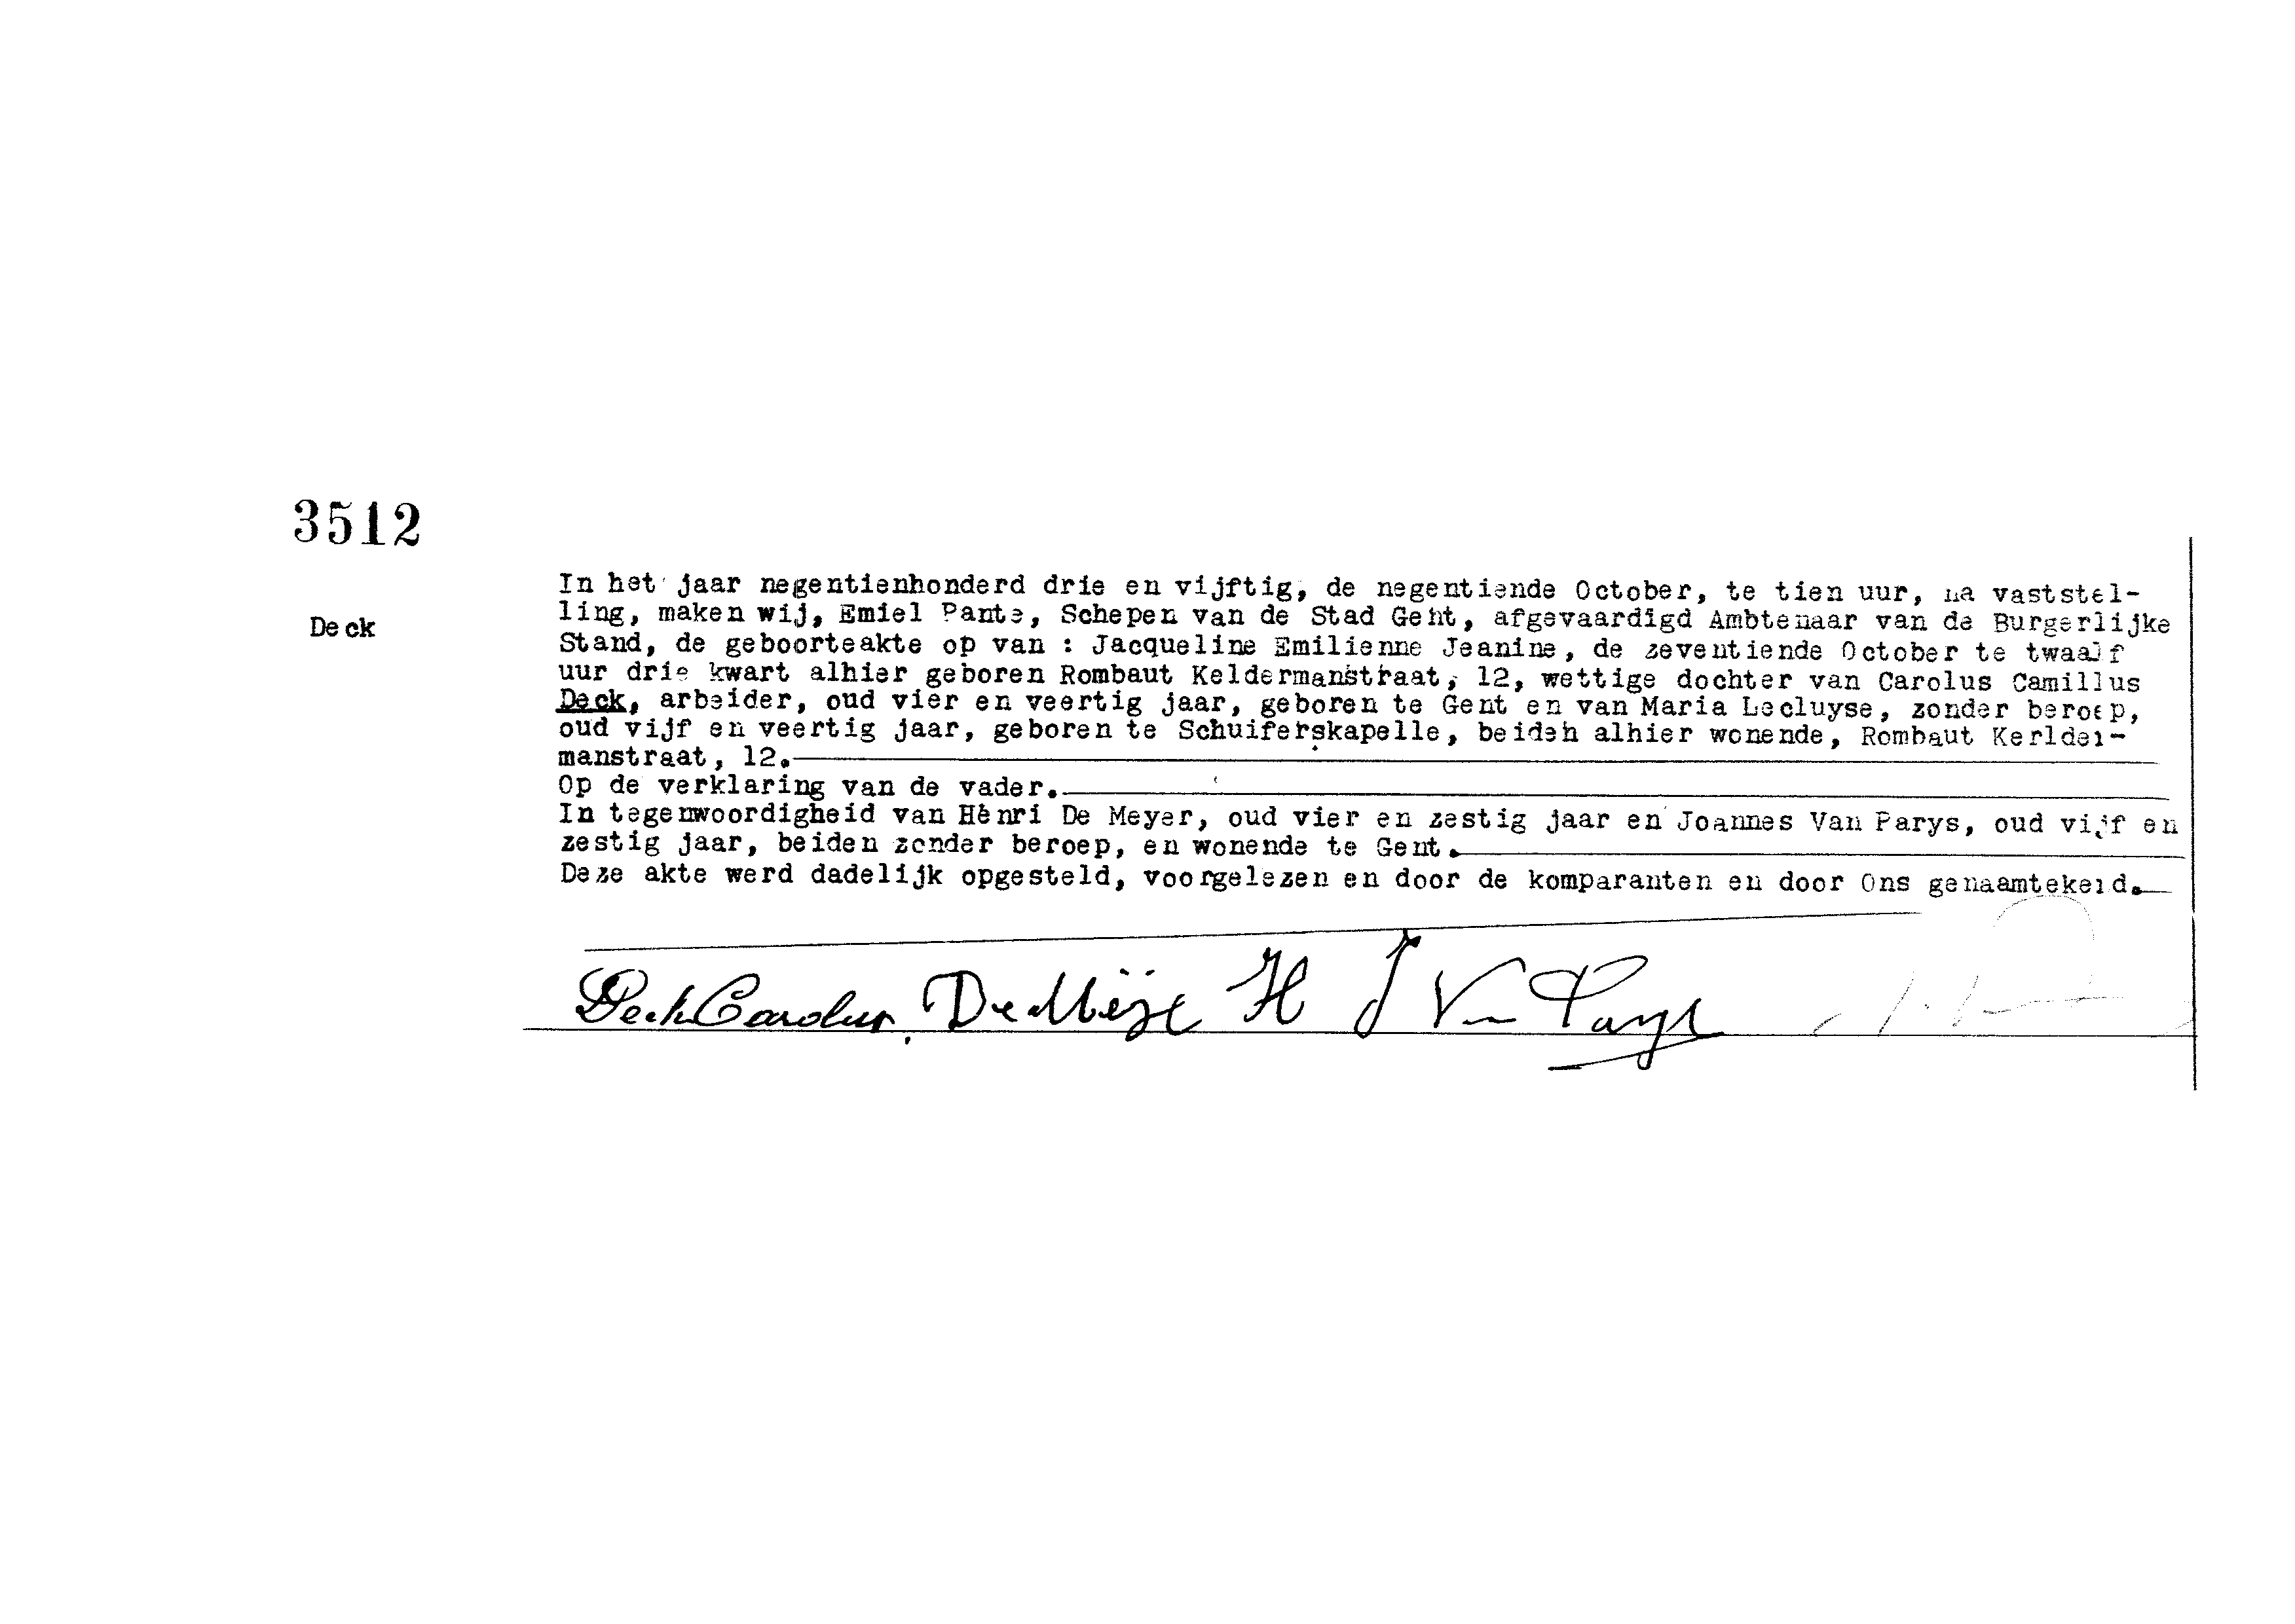 3512
Deck
In het jaar negentienhonderd drie en vijftig, de negentiende October, te tien uur, na vaststel-
ling, maken wij, Emiel Pante, Schepen van de Stad Geht, afgevaardigd Ambtenaar van de Burgerlijke
Stand, de geboorteakte op van : Jacqueline Emilienne Jeanine, de zeventiende October te twaalf
uur drie kwart alhier geboren Rombaut Keldermanstraat, 12, wettige dochter van Carolus Camillus
Deck, arbeider, oud vier en veertig jaar, geboren te Gent en van Maria Lecluyse, zonder beroep,
oud vijf en veertig jaar, geboren te Schuiferskapelle, beideh alhier wonende, Rombaut Kerlder-
manstraat, 12.
Op de verklaring van de vader.
In tegenwoordigheid van Henri De Meyer, oud vier en zestig jaar en Joannes Van Parys, oud vijf en
zestig jaar, beiden zonder beroep, en wonende te Gent.
Deze akte werd dadelijk opgesteld, voorgelezen en door de komparanten en door Ons genaamtekend.
Deck Carolus, H J Van Parys